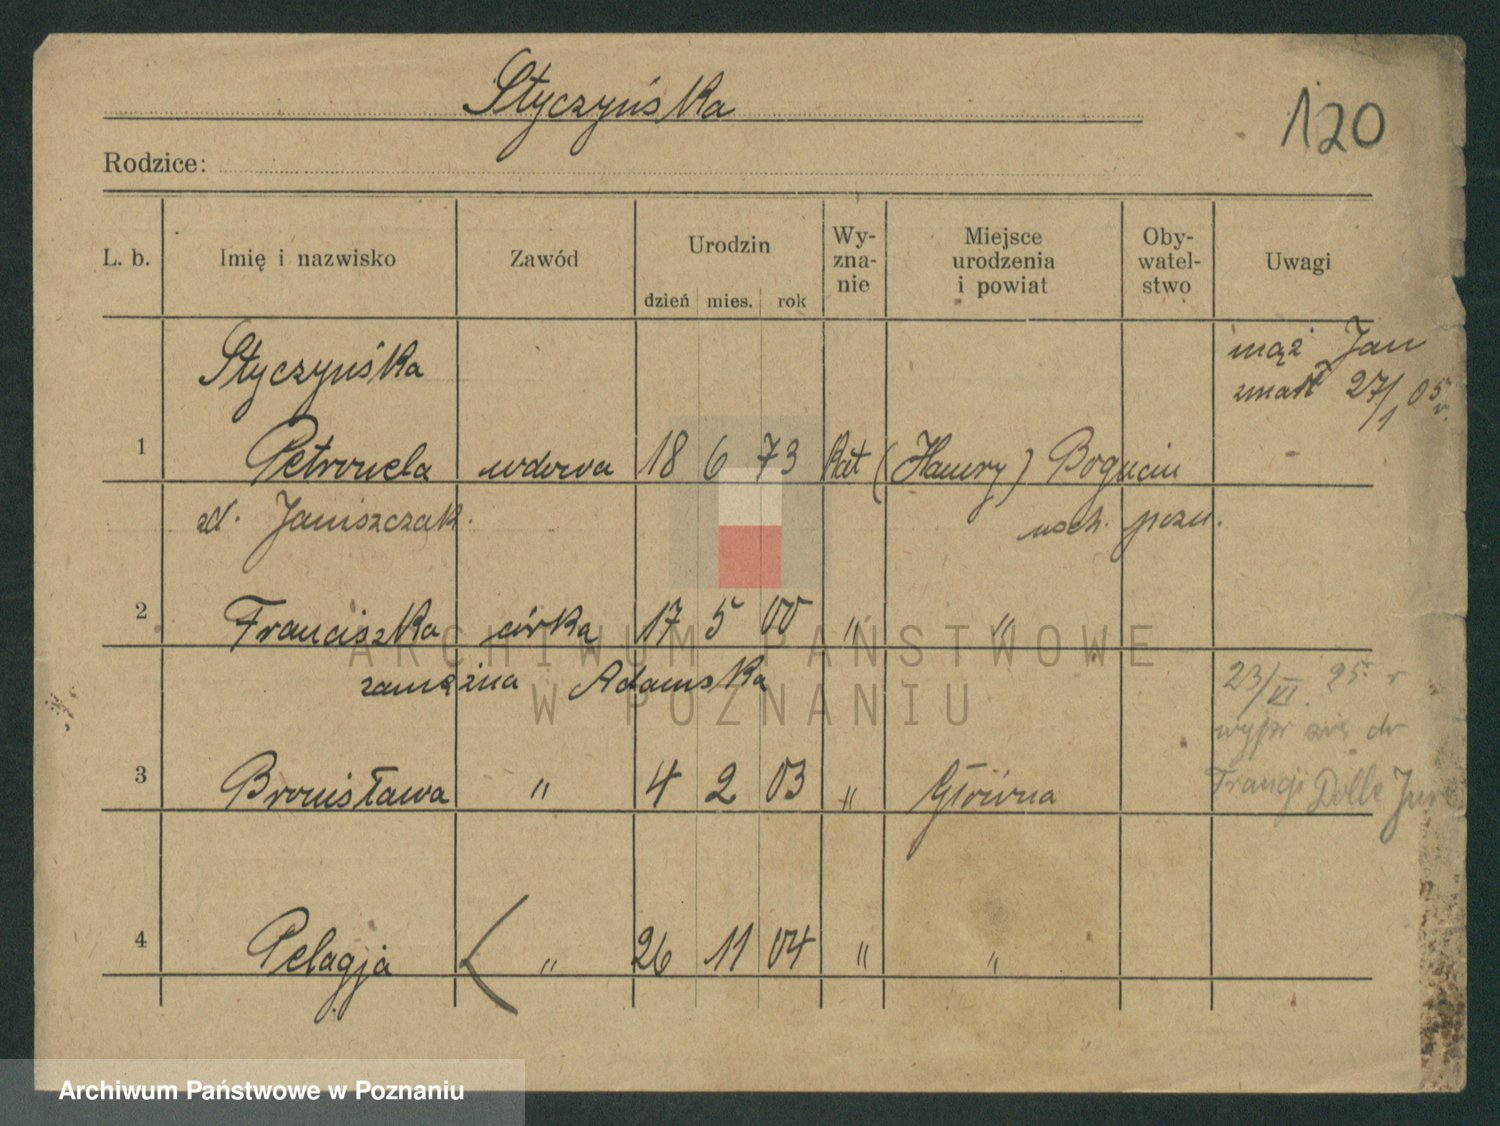 Styczyńska
120
Rodzice:
L. b. Imię i nazwisko Zawód Urodzin dzień mies. rok Wy-zna-nie Miejsce urodzenia i powiat Oby-watel-stwo Uwagi
Styczyńska mąż Jan
zmarł 27/1 05 r.
1 Petronela wdowa 18 6 73 kat (Hamry) Bogucin
zd. Janiszczak. wsch. pozn.
2 Franciszka córka 17 5 00 " "
zamężna Adamska
23/VI. 25 r
wypr się do
3 Bronisława " 4 2 03 " Główna
Francji Dolle Jura
4 Pelagja " 26 11 04 " "
ARCHIWUM PAŃSTWOWE
W POZNANIU
Archiwum Państwowe w Poznaniu